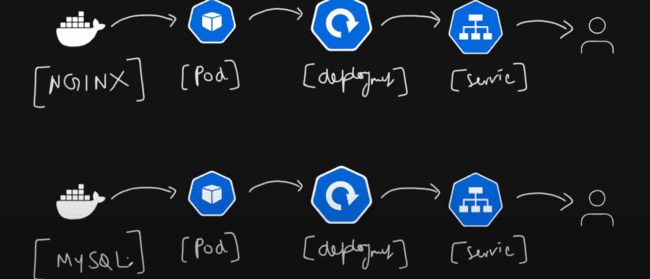 [NGINX] [Pod] [deploymt] [servic]
[MySQL] [Pod] [deploymt] [servic]